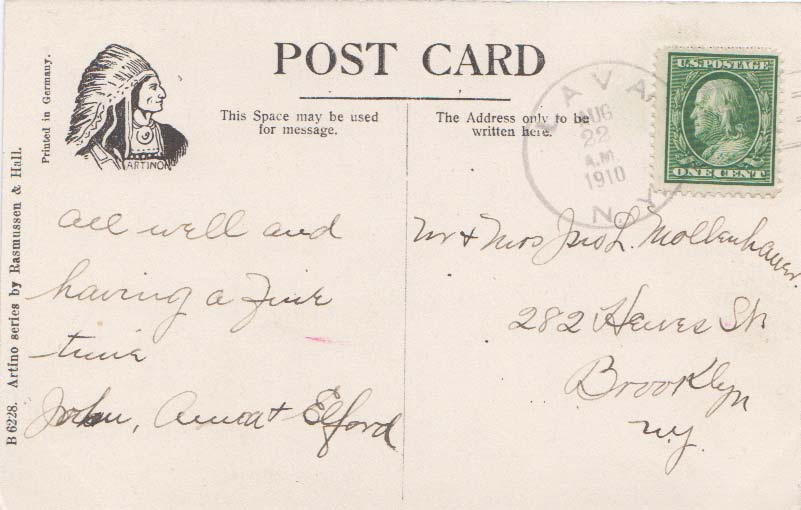 POST CARD
Printed in Germany.
ARTINO
This Space may be used
for message.
The Address only to be
written here.
U.S. POSTAGE
ONE CENT
LAVA
AUG
22
A.M.
1910
N.Y.
B 6228. Artino series by Rasmussen & Hall.
all well and
having a Fine
time
John, Anna + Elford
Mr + Mrs Jno L. Mollenhauer.
282 Hewes St
Brooklyn
N.Y.